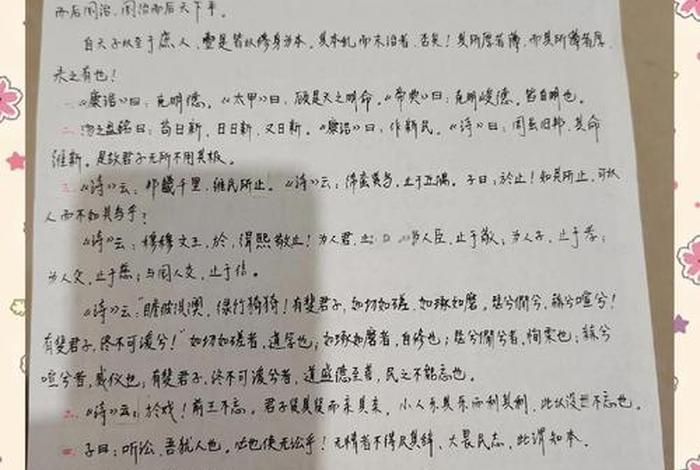 而后国治，国治而后天下平。
自天子以至于庶人，壹是皆以修身为本。其本乱而末治者，否矣！其所厚者薄，而其所薄者厚，
未之有也！
一.《康诰》曰：克明德。《太甲》曰：顾是天之明命。《帝典》曰：克明峻德。皆自明也。
二.汤之盘铭曰：苟日新，日日新，又日新。《康诰》曰：作新民。《诗》曰：周虽旧邦，其命
维新。是故君子无所不用其极。
三.《诗》云：邦畿千里，维民所止。《诗》云：缗蛮黄鸟，止于丘隅。子曰：於止！知其所止，可以
人而不如其鸟乎？
《诗》云：穆穆文王，於，缉熙敬止！为人君，止 为人臣，止于敬；为人子，止于孝；
为人父，止于慈；与国人交，止于信。
《诗》云："瞻彼淇澳，绿竹猗猗！有斐君子，如切如磋，如琢如磨，瑟兮僩兮，赫兮喧兮！
有斐君子，终不可谖兮！"如切如磋者，道学也；如琢如磨者，自修也；瑟兮僩兮者，恂栗也；赫兮
喧兮者，威仪也；有斐君子，终不可谖兮者，道盛德至善，民之不能忘也。
二.《诗》云：於戏！前王不忘。君子贤其贤而亲其亲，小人乐其乐而利其利，此以没世不忘也。
四.子曰：听讼，吾犹人也。必也使无讼乎！无情者不得尽其辞，大畏民志，此谓知本。